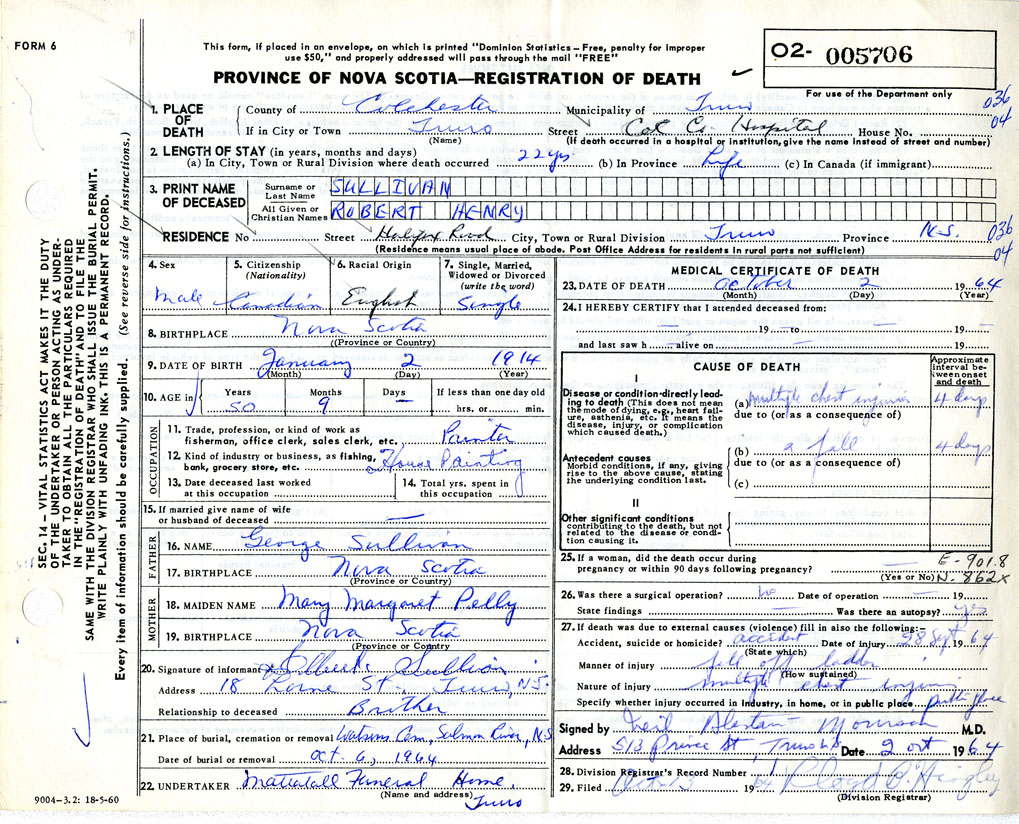 FORM 6
This form, if placed in an envelope, on which is printed "Dominion Statistics – Free, penalty for improper
use $50," and properly addressed will pass through the mail "FREE"
PROVINCE OF NOVA SCOTIA—REGISTRATION OF DEATH
02- 005706
For use of the Department only
036
04
1. PLACE OF DEATH
County of Colchester Municipality of Truro
If in City or Town Truro Street Col. Co. Hospital House No.
(Name) (If death occurred in a hospital or institution, give the name instead of street and number)
2. LENGTH OF STAY (in years, months and days)
(a) In City, Town or Rural Division where death occurred 22 yrs (b) In Province Life (c) In Canada (if immigrant)
3. PRINT NAME OF DECEASED
Surname or Last Name SULLIVAN
All Given or Christian Names ROBERT HENRY
RESIDENCE No Street Halifax Road City, Town or Rural Division Truro Province N.S.
036
04
(Residence means usual place of abode. Post Office Address for residents in rural parts not sufficient)
4. Sex Male
5. Citizenship (Nationality) Canadian
6. Racial Origin English
7. Single, Married, Widowed or Divorced (write the word) Single
8. BIRTHPLACE Nova Scotia
(Province or Country)
9. DATE OF BIRTH January 2 1914
(Month) (Day) (Year)
10. AGE in Years 50 Months 9 Days — If less than one day old hrs. or min.
OCCUPATION
11. Trade, profession, or kind of work as
fisherman, office clerk, sales clerk, etc. Painter
12. Kind of industry or business, as fishing,
bank, grocery store, etc. House Painting
13. Date deceased last worked
at this occupation
14. Total yrs. spent in
this occupation
15. If married give name of wife
or husband of deceased —
FATHER
16. NAME George Sullivan
17. BIRTHPLACE Nova Scotia
(Province or Country)
MOTHER
18. MAIDEN NAME Mary Margaret Pelly
19. BIRTHPLACE Nova Scotia
(Province or Country)
20. Signature of informant Sullivan
Address 18 Lorne St. Truro, N.S.
Relationship to deceased Brother
21. Place of burial, cremation or removal Watsons Cem., Salmon River, N.S.
Date of burial or removal Oct. 6, 1964
22. UNDERTAKER Mattatall Funeral Home,
(Name and address) Truro
MEDICAL CERTIFICATE OF DEATH
23. DATE OF DEATH October 2 1964
(Month) (Day) (Year)
24. I HEREBY CERTIFY that I attended deceased from:
— 19 — to — 19 —
and last saw h — alive on — 19 —
CAUSE OF DEATH
Approximate interval between onset and death
I
Disease or condition directly leading to death (This does not mean the mode of dying, e.g., heart failure, asthenia, etc. It means the disease, injury, or complication which caused death.)
(a) multiple chest injuries 4 days
due to (or as a consequence of)
Antecedent causes
Morbid conditions, if any, giving rise to the above cause, stating the underlying condition last.
(b) a fall 4 days
due to (or as a consequence of)
(c)
II
Other significant conditions contributing to the death, but not related to the disease or condition causing it.
25. If a woman, did the death occur during
pregnancy or within 90 days following pregnancy? —
(Yes or No)
E-901.8
N-862x
26. Was there a surgical operation? No Date of operation — 19
State findings — Was there an autopsy? yes
27. If death was due to external causes (violence) fill in also the following:—
Accident, suicide or homicide? accident Date of injury 28 Sept 1964
(State which)
Manner of injury fall off ladder
(How sustained)
Nature of injury multiple chest injuries
Specify whether injury occurred in industry, in home, or in public place public place
Signed by Neil M.D.
Address 513 Prince St, Truro NS Date 2 Oct 1964
28. Division Registrar's Record Number
29. Filed 1964
(Division Registrar)
SEC. 14 – VITAL STATISTICS ACT MAKES IT THE DUTY
OF THE UNDERTAKER OR PERSON ACTING AS UNDER-
TAKER TO OBTAIN ALL THE PARTICULARS REQUIRED
IN THE "REGISTRATION OF DEATH" AND TO FILE THE
SAME WITH THE DIVISION REGISTRAR WHO SHALL ISSUE THE BURIAL PERMIT.
WRITE PLAINLY WITH UNFADING INK. THIS IS A PERMANENT RECORD.
Every item of information should be carefully supplied. (See reverse side for instructions.)
9004-3.2: 18-5-60